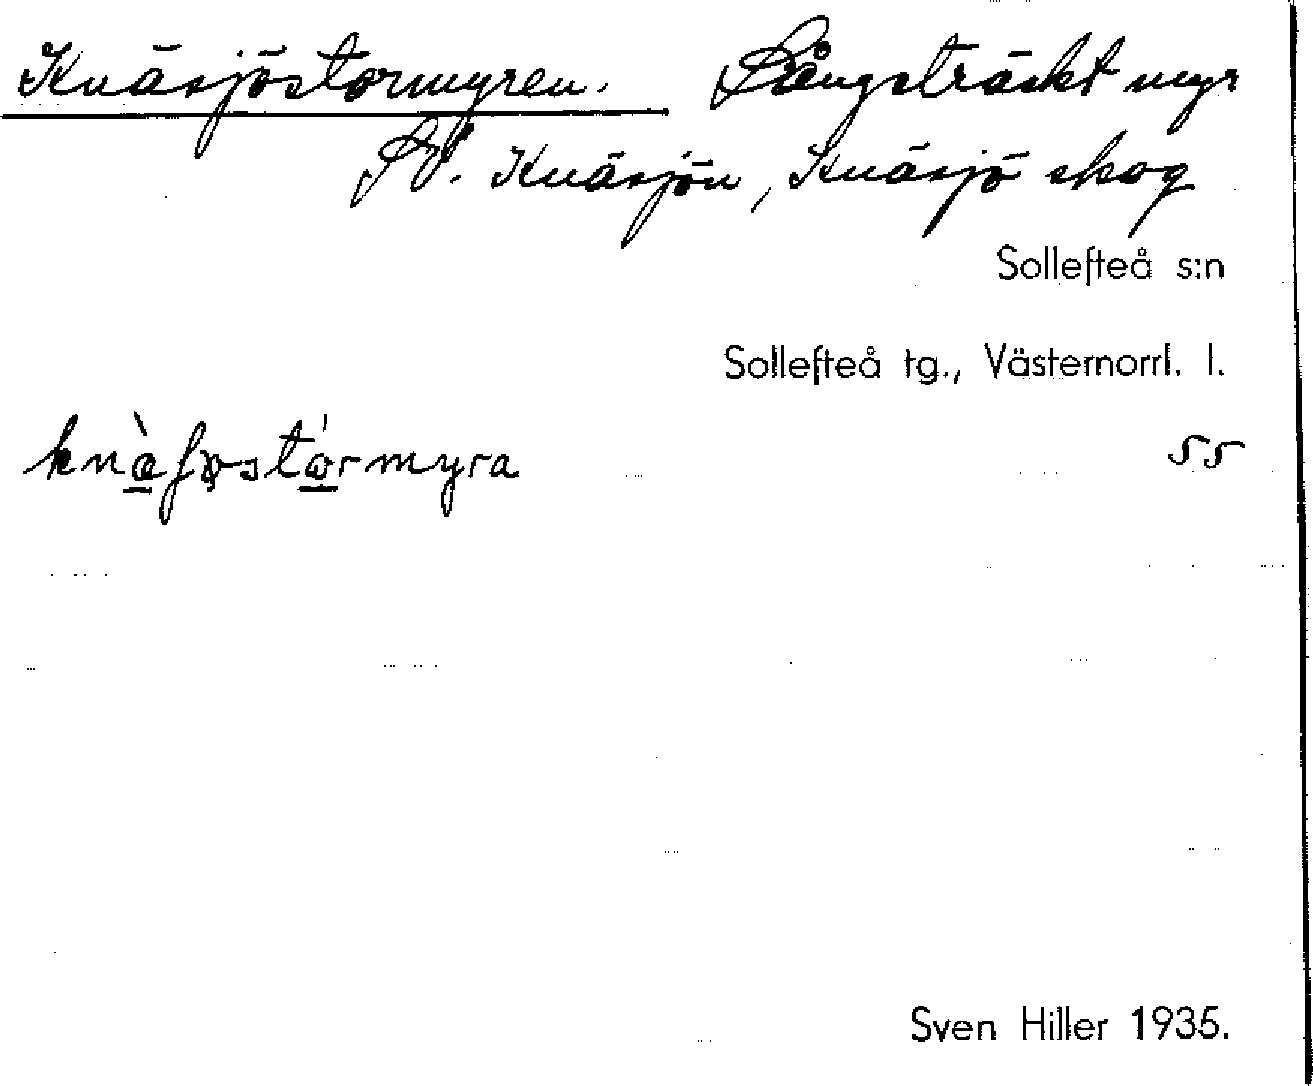 Knäsjöstormyren. Långsträckt myr
SV. Knäsjön, Knäsjö skog
Sollefteå s:n
Sollefteå tg., Västernorrl. l.
55
Sven Hiller 1935.